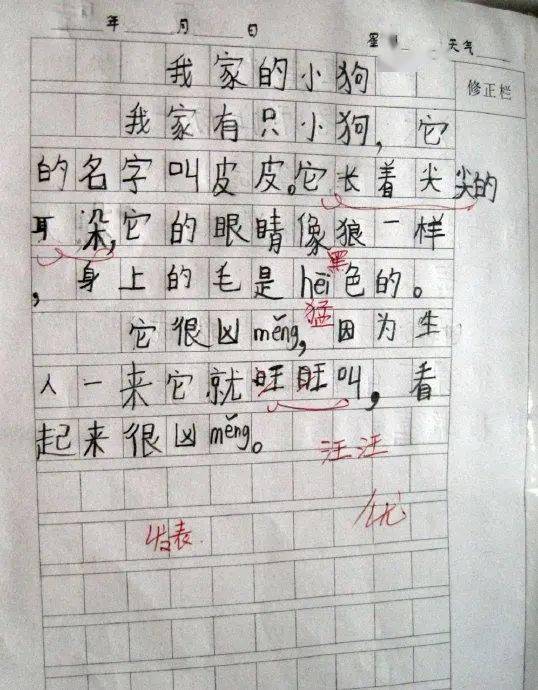 年 月 日 星 天气
修正栏
我家的小狗
我家有只小狗，它
的名字叫皮皮。它长着尖尖的
耳朵，它的眼睛像狼一样
，身上的毛是hēi色的。
黑
它很凶měng，因为生
猛
人一来它就旺旺叫，看
起来很凶měng。
汪汪
优
发表